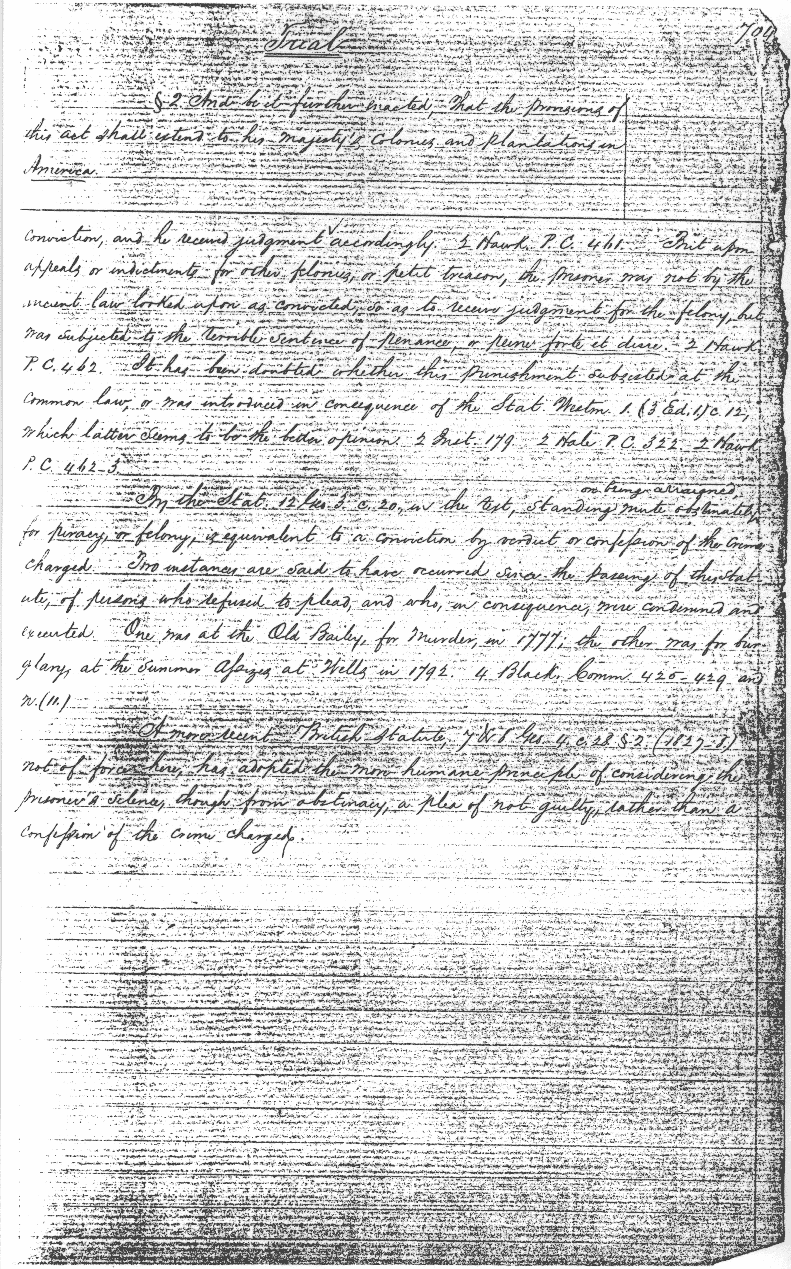 Trial
§ 2 And be it further enacted, That the provisions of
this act shall extend to his majesty's Colonies and plantations in
America.
conviction, and he received judgment accordingly. 2 Hawk. P.C. 461. But upon
appeals or indictments for other felonies, or petit treason, the prisoner was not by the
ancient law looked upon as convicted, so as to receive judgment for the felony, but
was subjected to the terrible sentence of penance, or peine forte et dure. 2 Hawk
P.C. 462. It has been doubted whether this punishment subsisted at the
common law, or was introduced in consequence of the Stat. Westm. 1. (3 Ed. 1) c. 12,
which latter seems to be the better opinion. 2 Inst. 179. 2 Hale P.C. 322 2 Hawk
P.C. 462-3
on being arraigned,
By the Stat. 12 Geo. 3. c. 20, in the text, standing mute obstinately
for piracy, or felony, is equivalent to a conviction by verdict or confession of the crime
charged. Two instances are said to have occurred since the passing of this Stat-
ute, of persons who refused to plead, and who, in consequence, were condemned and
executed. One was at the Old Bailey, for murder, in 1777; the other was for bur-
glary, at the Summer Assizes, at Wells, in 1792. 4 Black. Comm. 425-429 and
n. (11.)
A more recent British statute, 7 & 8 Geo. 4. c. 28 § 2. (1827-8,)
not of force here, has adopted the more humane principle of considering the
prisoner's silence, though from obstinacy, a plea of not guilty, rather than a
confession of the crime charged.